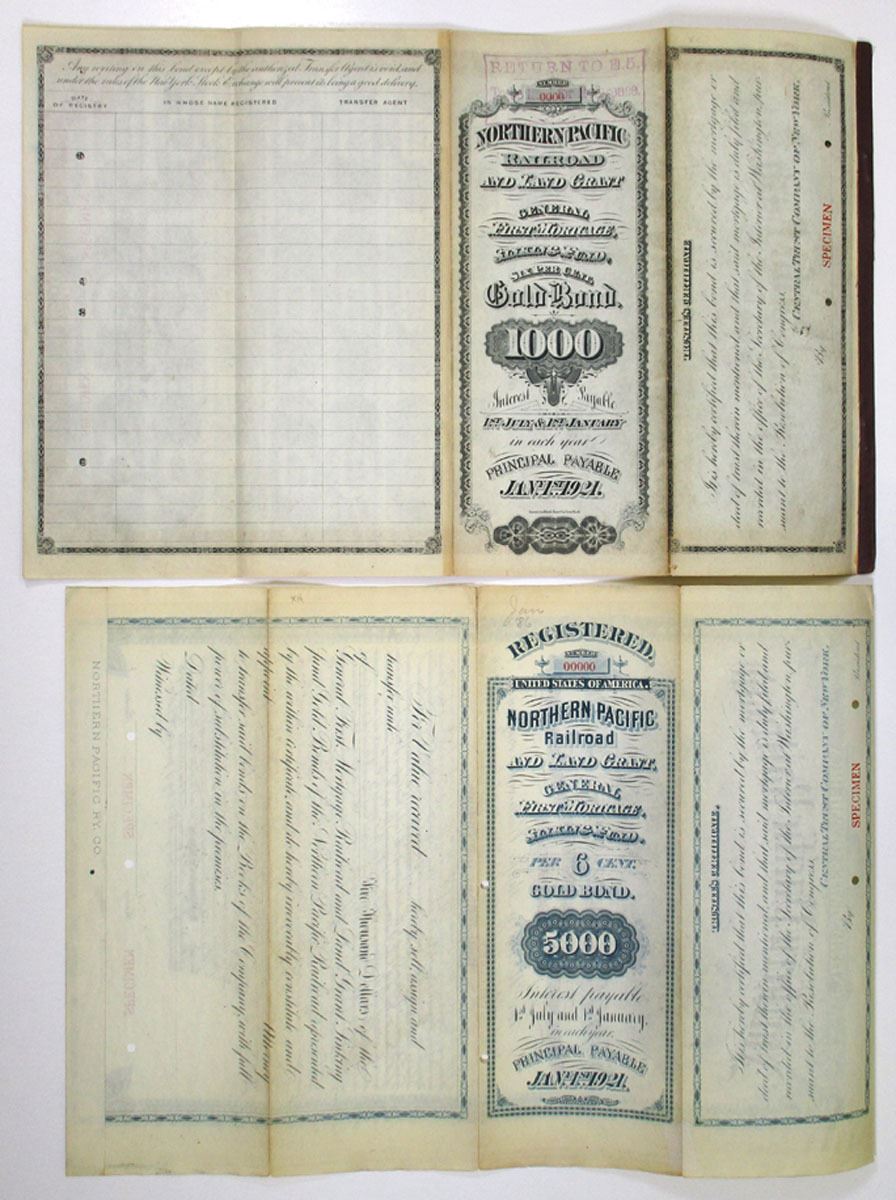 Any writing on this bond except by the authorized Transfer Agent is void, and
under the rules of the New York Stock Exchange will prevent its being a good delivery.
DATE OF REGISTRY
IN WHOSE NAME REGISTERED
TRANSFER AGENT
RETURN TO E.5.
NUMBER
0000
NORTHERN PACIFIC
RAILROAD
AND LAND GRANT
GENERAL
FIRST MORTGAGE,
SINKING FUND,
SIX PER CENT.
Gold Bond.
1000
Interest Payable
1ST JULY & 1ST JANUARY
in each year
PRINCIPAL PAYABLE
JANY. 1ST 1921.
TRUSTEE'S CERTIFICATE
It is hereby certified that this bond is secured by the mortgage or
deed of trust therein mentioned, and that said mortgage is duly filed and
recorded in the office of the Secretary of the Interior at Washington, pur-
suant to the Resolution of Congress.
CENTRAL TRUST COMPANY OF NEW YORK,
By
SPECIMEN
President
NORTHERN PACIFIC RY. CO.
SPECIMEN
SPECIMEN
For Value received
hereby sell, assign and
transfer unto
Five Thousand Dollars of the
of
General First Mortgage Railroad and Land Grant Sinking
Fund Gold Bonds of the Northern Pacific Railroad represented
by the within Certificate, and do hereby irrevocably constitute and
appoint
Attorney
to transfer said bonds on the Books of the Company, with full
power of substitution in the premises.
Dated
Witnessed by
Jan
86
REGISTERED.
NUMBER
00000
UNITED STATES OF AMERICA.
NORTHERN PACIFIC
Railroad
AND LAND GRANT,
GENERAL
FIRST MORTGAGE,
SINKING FUND,
PER 6 CENT.
GOLD BOND.
5000
Interest payable
1st July and 1st January,
in each year.
PRINCIPAL PAYABLE
JANY. 1ST 1921.
TRUSTEE'S CERTIFICATE.
It is hereby certified that this bond is secured by the mortgage or
deed of trust therein mentioned, and that said mortgage is duly filed and
recorded in the office of the Secretary of the Interior at Washington, pur-
suant to the Resolution of Congress.
CENTRAL TRUST COMPANY OF NEW YORK,
By
SPECIMEN
President